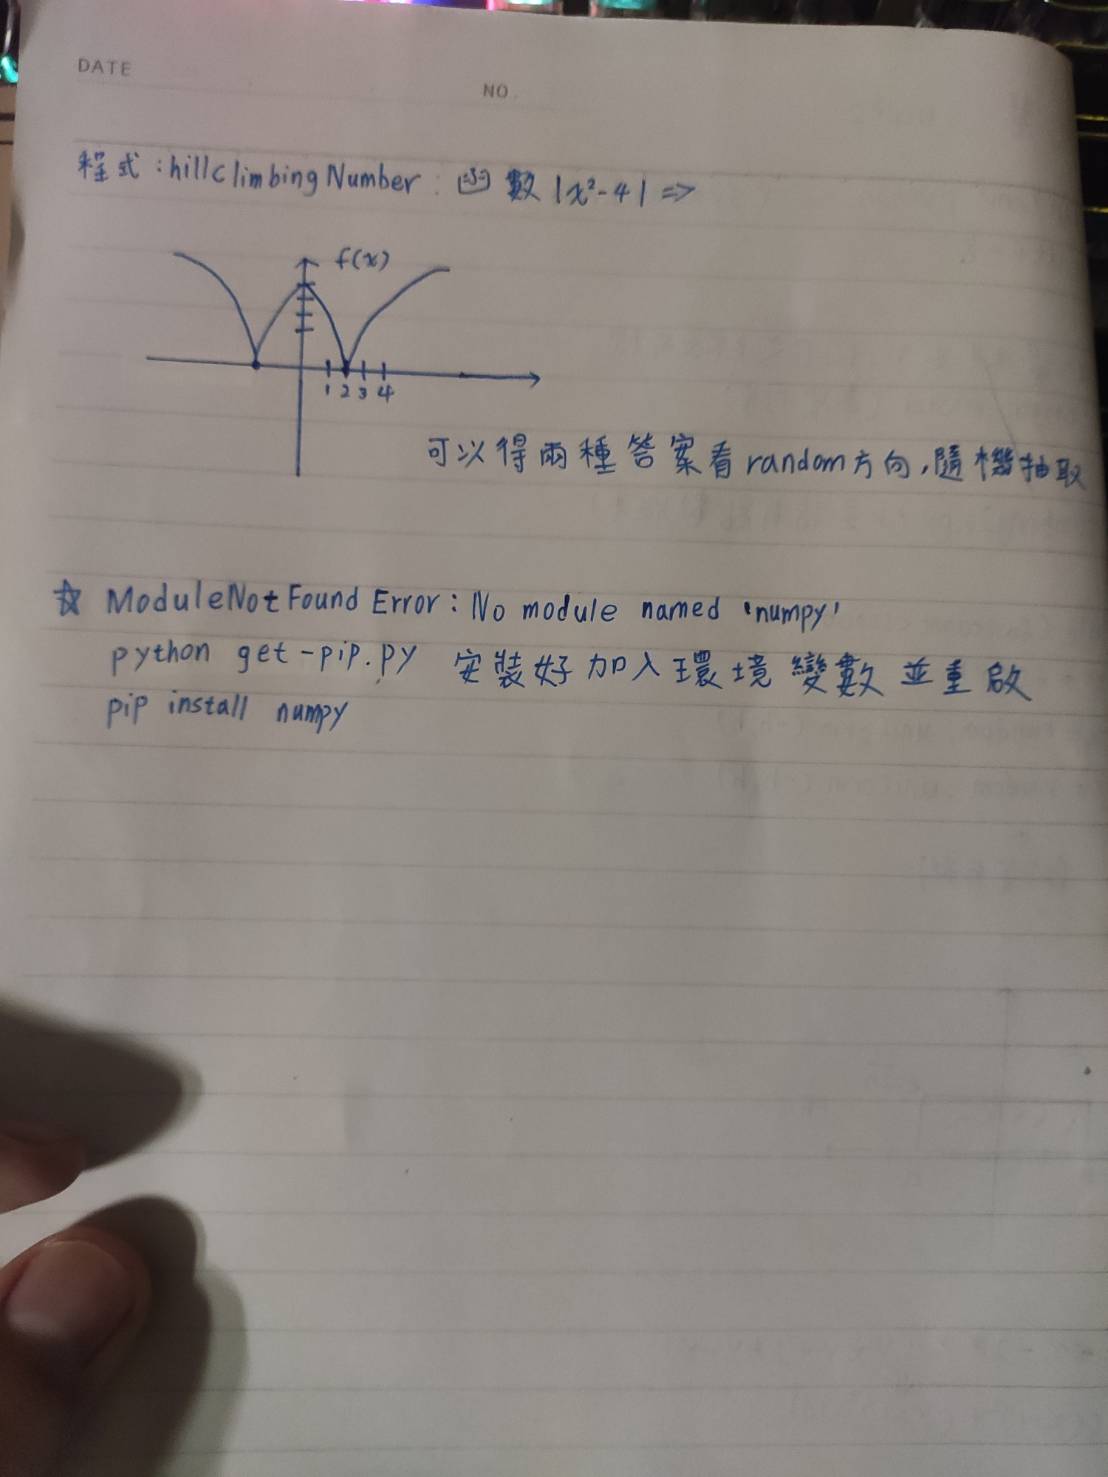 DATE
NO.
程式:hillclimbingNumber:函數|x²-4|=>
f(x)
1 2 3 4
可以得兩種答案看random方向,隨機抽取
☆ ModuleNotFoundError:No module named 'numpy'
python get-pip.py 安裝好加入環境變數並重啟
pip install numpy